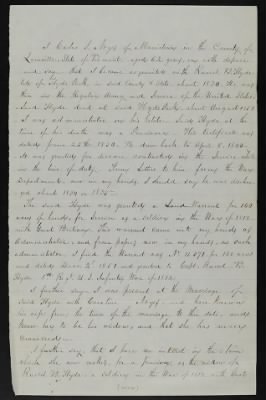 I Carlos S. Noyes of Morristown in the County of
Lamoille State of Vermont, aged fifty years, on oath depose
and say that I became acquainted with Russell B. Hyde
late of Hyde Park, in said County & State, about 1830. He was
then in the Regular Army and Service of the United States.
Said Hyde died at said Hyde Park, about August 1852.
I was administrator on his Estate. Said Hyde at the
time of his death was a Pensioner. His Certificate was
dated June 25th 1850. To draw back to April 8. 1850.
It was granted for disease contracted in the Service
in the line of duty. From Letters to him, from the War
Department now in my hands, I should say he was discharged
about 1834 or 1835.
The said Hyde was granted a Land Warrant for 160
acres of land, for Service as a soldier in the War of 1812.
with Great Britain. This warrant came into my hands as
Administrator, and from papers now in my hands, as such
administrator, I find the Warrant was No 11.371 for 160 acres
and dated 1851 and granted to Capt. Russell B.
Hyde U.S. Infantry War of 1812.
I further say I was present at the Marriage of
Said Hyde with Caroline Noyes and have known
his wife from the time of the marriage to this date, and
know her to be his widow, and that she has never
remarried.
I further say, that I have no interest in the claim
which she now makes, for a pension, as the widow of
Russell B. Hyde, a soldier in the War of 1812 with Great
(over)